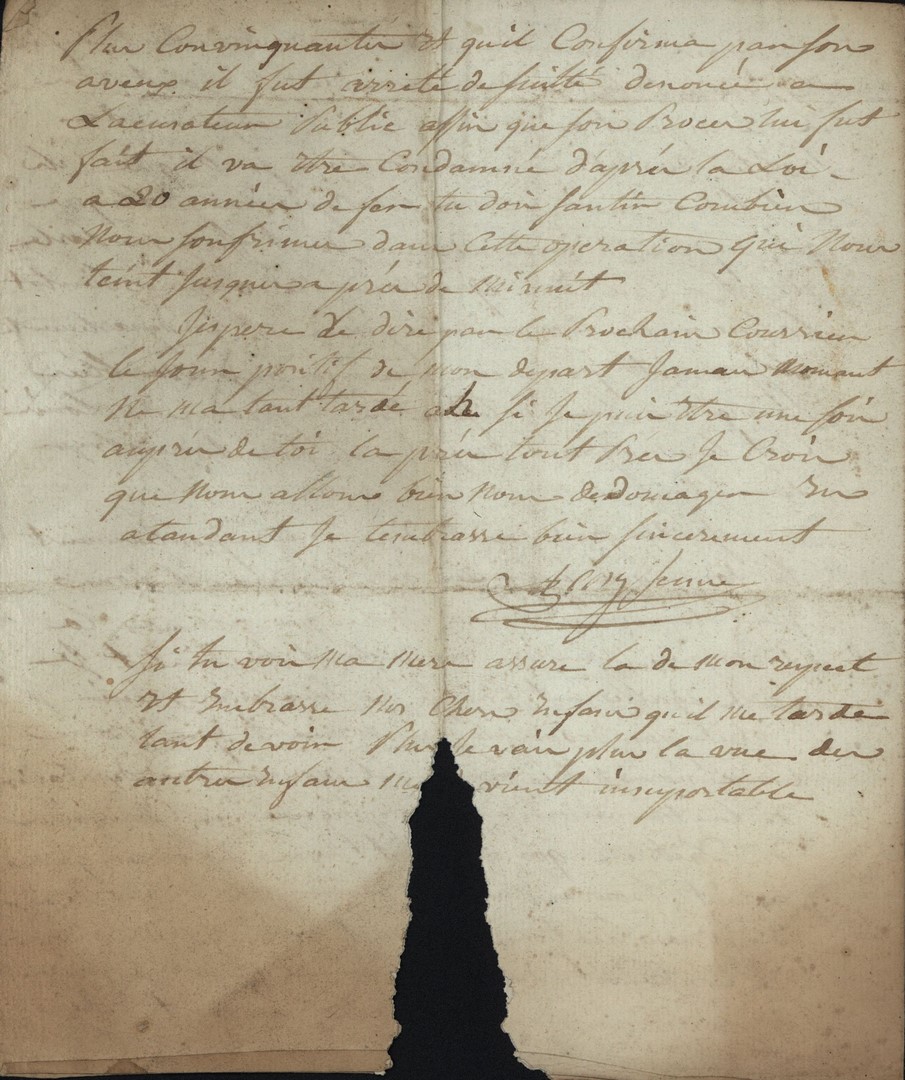 Plus Convinquante et quil Confirma par son
aveux il fut arretté de suitte denoncé a
Lacusateur Public affin que son Procer lui fut
fait il va etre Condamné daprés la Loi
a 20 année de fer tu doi santir Combien
Nous souffrimes dans Cette operation qui Nous
teint Jusques a prés de Minuit
Jespere te dire par le Prochain Courrier
le Jour positif de mon depart Jamais Moment
Ne ma tant tardé ah si Je puis être une fois
aupres de toi la prés tout Pres Je Crois
que Nous allons bien Nous dedomager En
atandant Je tembrasse bien sincerement
Jeune
Si tu vois ma mere assure la de mon respect
et Embrasse Nos Chers Enfans quil me tarde
tant de voir Plus Je vais plus la vue des
autres Enfans vient insuportable